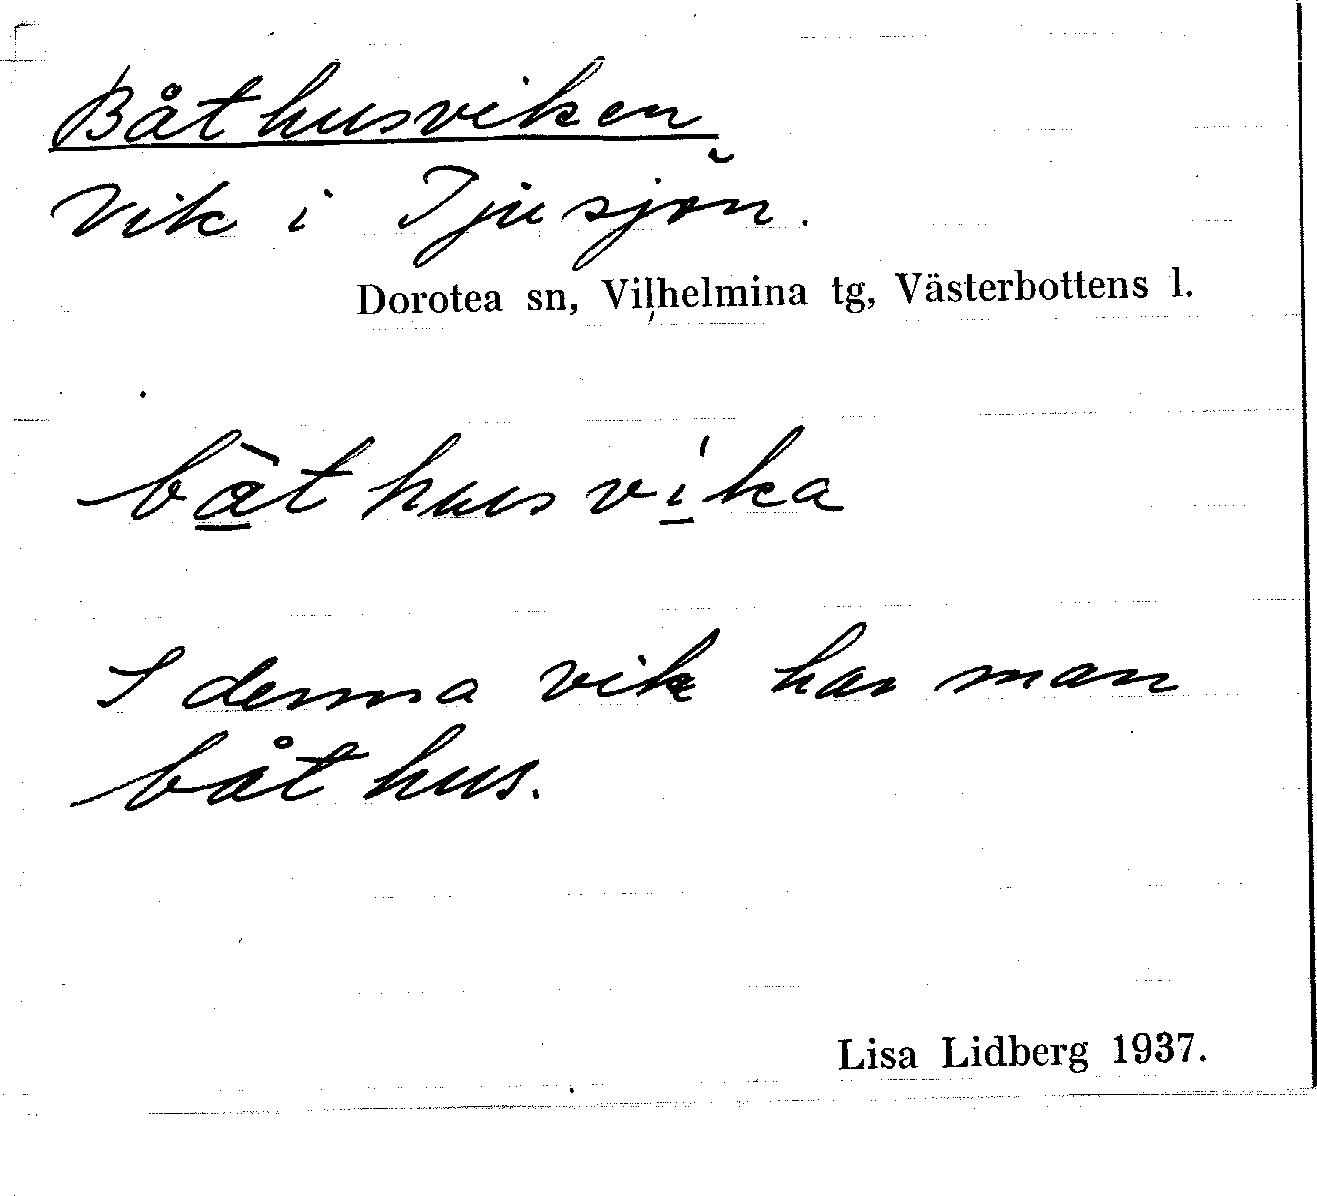 Båthusviken
Vik i Tjusjön.
Dorotea sn, Vilhelmina tg, Västerbottens l.
bàthusvíka
I denna vik har man
båthus.
Lisa Lidberg 1937.